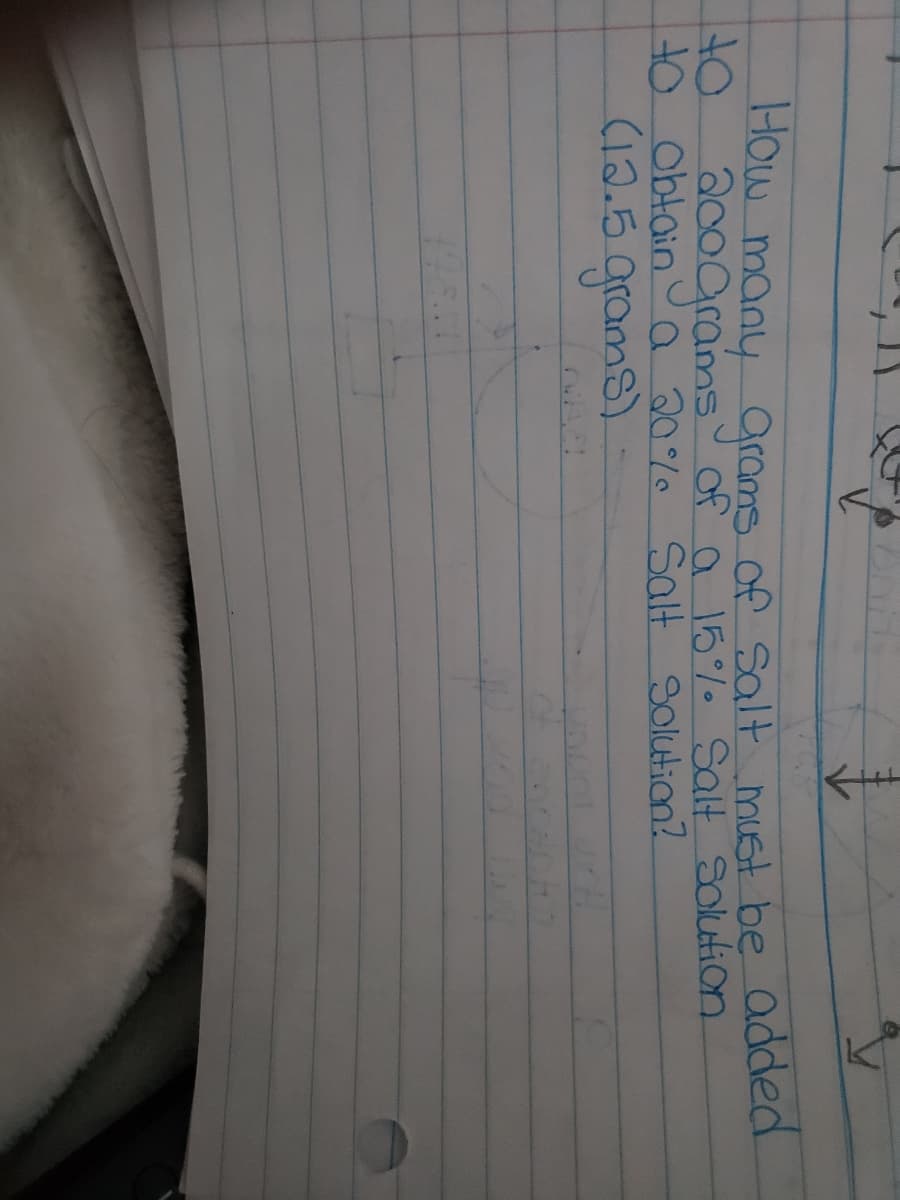 How many grams of salt must be added
to 200 grams of a 15% salt solution
to obtain a 20% salt solution?
(12.5 grams)